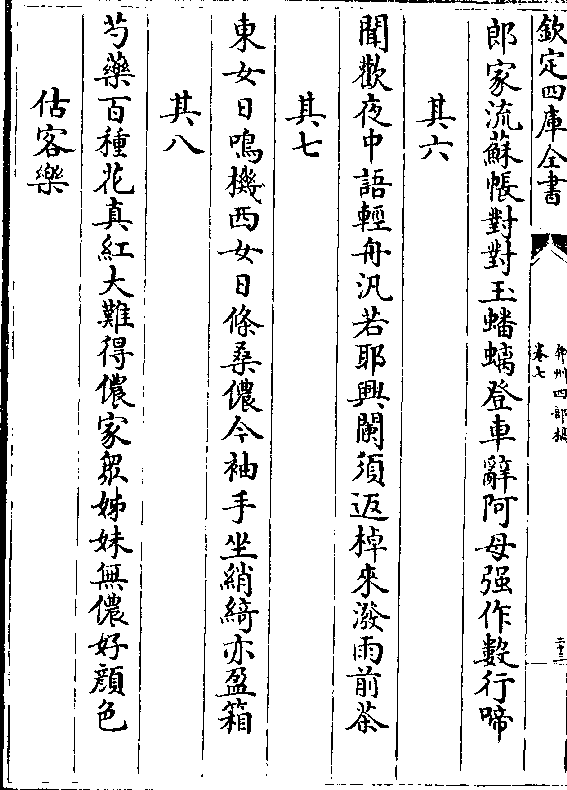 欽定四庫全書
弇州四部稿
卷七
二十三
郎家流蘇帳對對玉蟠螭登車辭阿母强作數行啼
其六
聞歡夜中語輕舟汎若耶興闌須返棹來潑雨前茶
其七
東女日鳴機西女日條桑儂今袖手坐綃綺亦盈箱
其八
芍藥百種花真紅大難得儂家眾姊妹無儂好顔色
估客樂